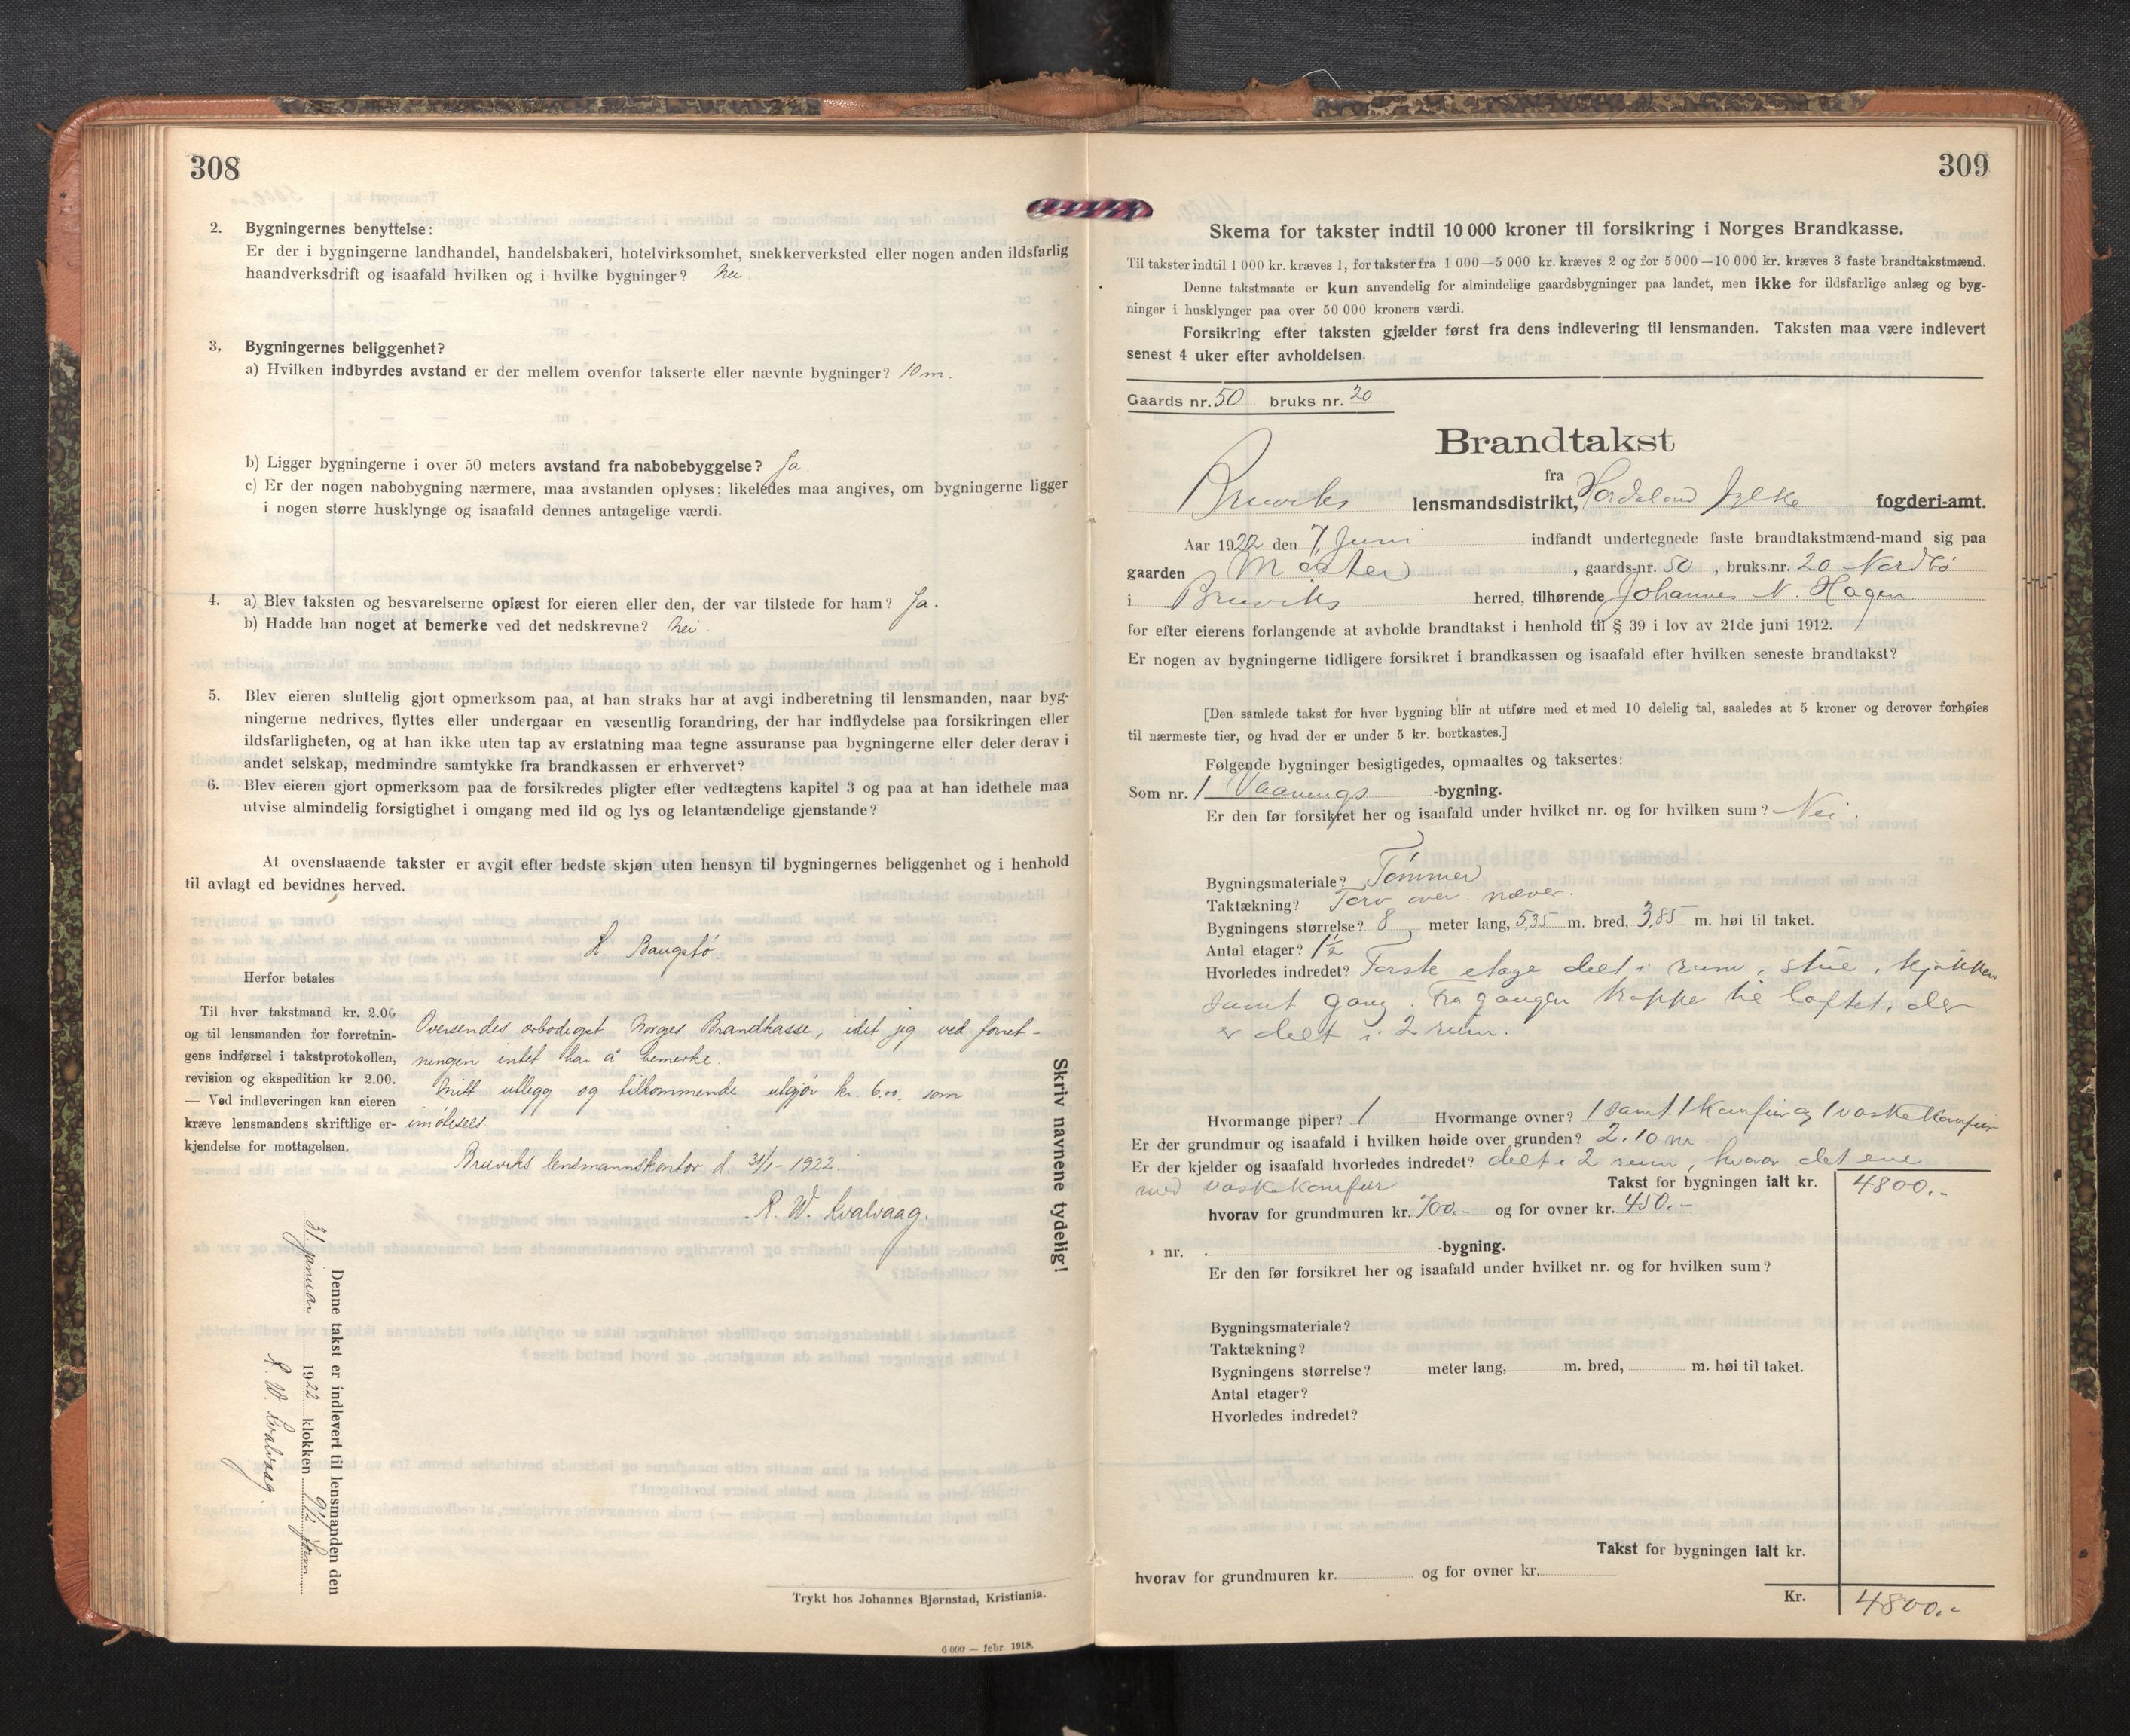 308
2. Bygningernes benyttelse:
Er der i bygningerne landhandel, handelsbakeri, hotelvirksomhet, snekkerverksted eller nogen anden ildsfarlig
haandverksdrift og isaafald hvilken og i hvilke bygninger? Nei
3. Bygningernes beliggenhet?
a) Hvilken indbyrdes avstand er der mellem ovenfor takserte eller nævnte bygninger? 10 m.
b) Ligger bygningerne i over 50 meters avstand fra nabobebyggelse? Ja.
c) Er der nogen nabobygning nærmere, maa avstanden oplyses; likeledes maa angives, om bygningerne ligger
i nogen større husklynge og isaafald dennes antagelige værdi.
4. a) Blev taksten og besvarelserne oplæst for eieren eller den, der var tilstede for ham? Ja.
b) Hadde han noget at bemerke ved det nedskrevne? Nei.
5. Blev eieren sluttelig gjort opmerksom paa, at han straks har at avgi indberetning til lensmanden, naar byg-
ningerne nedrives, flyttes eller undergaar en væsentlig forandring, der har indflydelse paa forsikringen eller
ildsfarligheten, og at han ikke uten tap av erstatning maa tegne assuranse paa bygningerne eller deler derav i
andet selskap, medmindre samtykke fra brandkassen er erhvervet?
6. Blev eieren gjort opmerksom paa de forsikredes pligter efter vedtægtens kapitel 3 og paa at han idethele maa
utvise almindelig forsigtighet i omgang med ild og lys og letantændelige gjenstande?
At ovenstaaende takster er avgit efter bedste skjøn uten hensyn til bygningernes beliggenhet og i henhold
til avlagt ed bevidnes herved.
H. Baugstø.
Herfor betales
Til hver takstmand kr. 2.00
og til lensmanden for forretnin-
gens indførsel i takstprotokollen,
revision og ekspedition kr 2.00.
— Ved indleveringen kan eieren
kræve lensmandens skriftlige er-
kjendelse for mottagelsen.
Oversendes ærbødigst Norges Brandkasse, idet jeg ved forret-
ningen intet har å bemerke.
Mitt utlegg og tilkommende utgjør kr. 6.00, som
imøtesees
Bruviks lensmannskontor d. 31/1- 1922.
R. W. Kvalvaag.
Skriv navnene tydelig!
Denne takst er indlevert til lensmanden den
31 januar 1922 klokken 9 1/2 form.
R. W. Kvalvaag
Trykt hos Johannes Bjørnstad, Kristiania.
6 000 — febr. 1918.
309
Skema for takster indtil 10 000 kroner til forsikring i Norges Brandkasse.
Til takster indtil 1 000 kr. kræves 1, for takster fra 1 000—5 000 kr. kræves 2 og for 5 000—10 000 kr. kræves 3 faste brandtakstmænd.
Denne takstmaate er kun anvendelig for almindelige gaardsbygninger paa landet, men ikke for ildsfarlige anlæg og byg-
ninger i husklynger paa over 50 000 kroners værdi.
Forsikring efter taksten gjælder først fra dens indlevering til lensmanden. Taksten maa være indlevert
senest 4 uker efter avholdelsen.
Gaards nr. 50 bruks nr. 20
Brandtakst
fra
Bruviks lensmandsdistrikt, Hordaland fylke fogderi-amt.
Aar 1922 den 7 Juni indfandt undertegnede faste brandtakstmænd-mand sig paa
gaarden , gaards-nr. 50 , bruks.nr. 20 Nordbø
i Bruviks herred, tilhørende Johannes N. Hagen.
for efter eierens forlangende at avholde brandtakst i henhold til § 39 i lov av 21de juni 1912.
Er nogen av bygningerne tidligere forsikret i brandkassen og isaafald efter hvilken seneste brandtakst?
[Den samlede takst for hver bygning blir at utføre med et med 10 delelig tal, saaledes at 5 kroner og derover forhøies
til nærmeste tier, og hvad der er under 5 kr. bortkastes.]
Følgende bygninger besigtigedes, opmaaltes og taksertes:
Som nr. 1 Vaanings -bygning.
Er den før forsikret her og isaafald under hvilket nr. og for hvilken sum? Nei.
Bygningsmateriale? Tømmer
Taktækning? Torv over næver.
Bygningens størrelse? 8 meter lang, 5,35 m. bred, 3,85 m. høi til taket.
Antal etager? 1 1/2
Hvorledes indredet? Første etage delt i rum, stue, kjøkken
samt gang. Fra gangen trappe til loftet, der
er delt i 2 rum.
Hvormange piper? 1 Hvormange ovner? 1 samt 1 komfur og 1 vaskekomfur
Er der grundmur og isaafald i hvilken høide over grunden? 2.10 m.
Er der kjelder og isaafald hvorledes indredet? delt i 2 rum, hvorav det ene
med vaskekomfur Takst for bygningen ialt kr. 4800.-
hvorav for grundmuren kr. 700.- og for ovner kr. 450.-
» nr. -bygning.
Er den før forsikret her og isaafald under hvilket nr. og for hvilken sum?
Bygningsmateriale?
Taktækning?
Bygningens størrelse? meter lang, m. bred, m. høi til taket.
Antal etager?
Hvorledes indredet?
Takst for bygningen ialt kr.
hvorav for grundmuren kr. og for ovner kr.
Kr. 4800.-